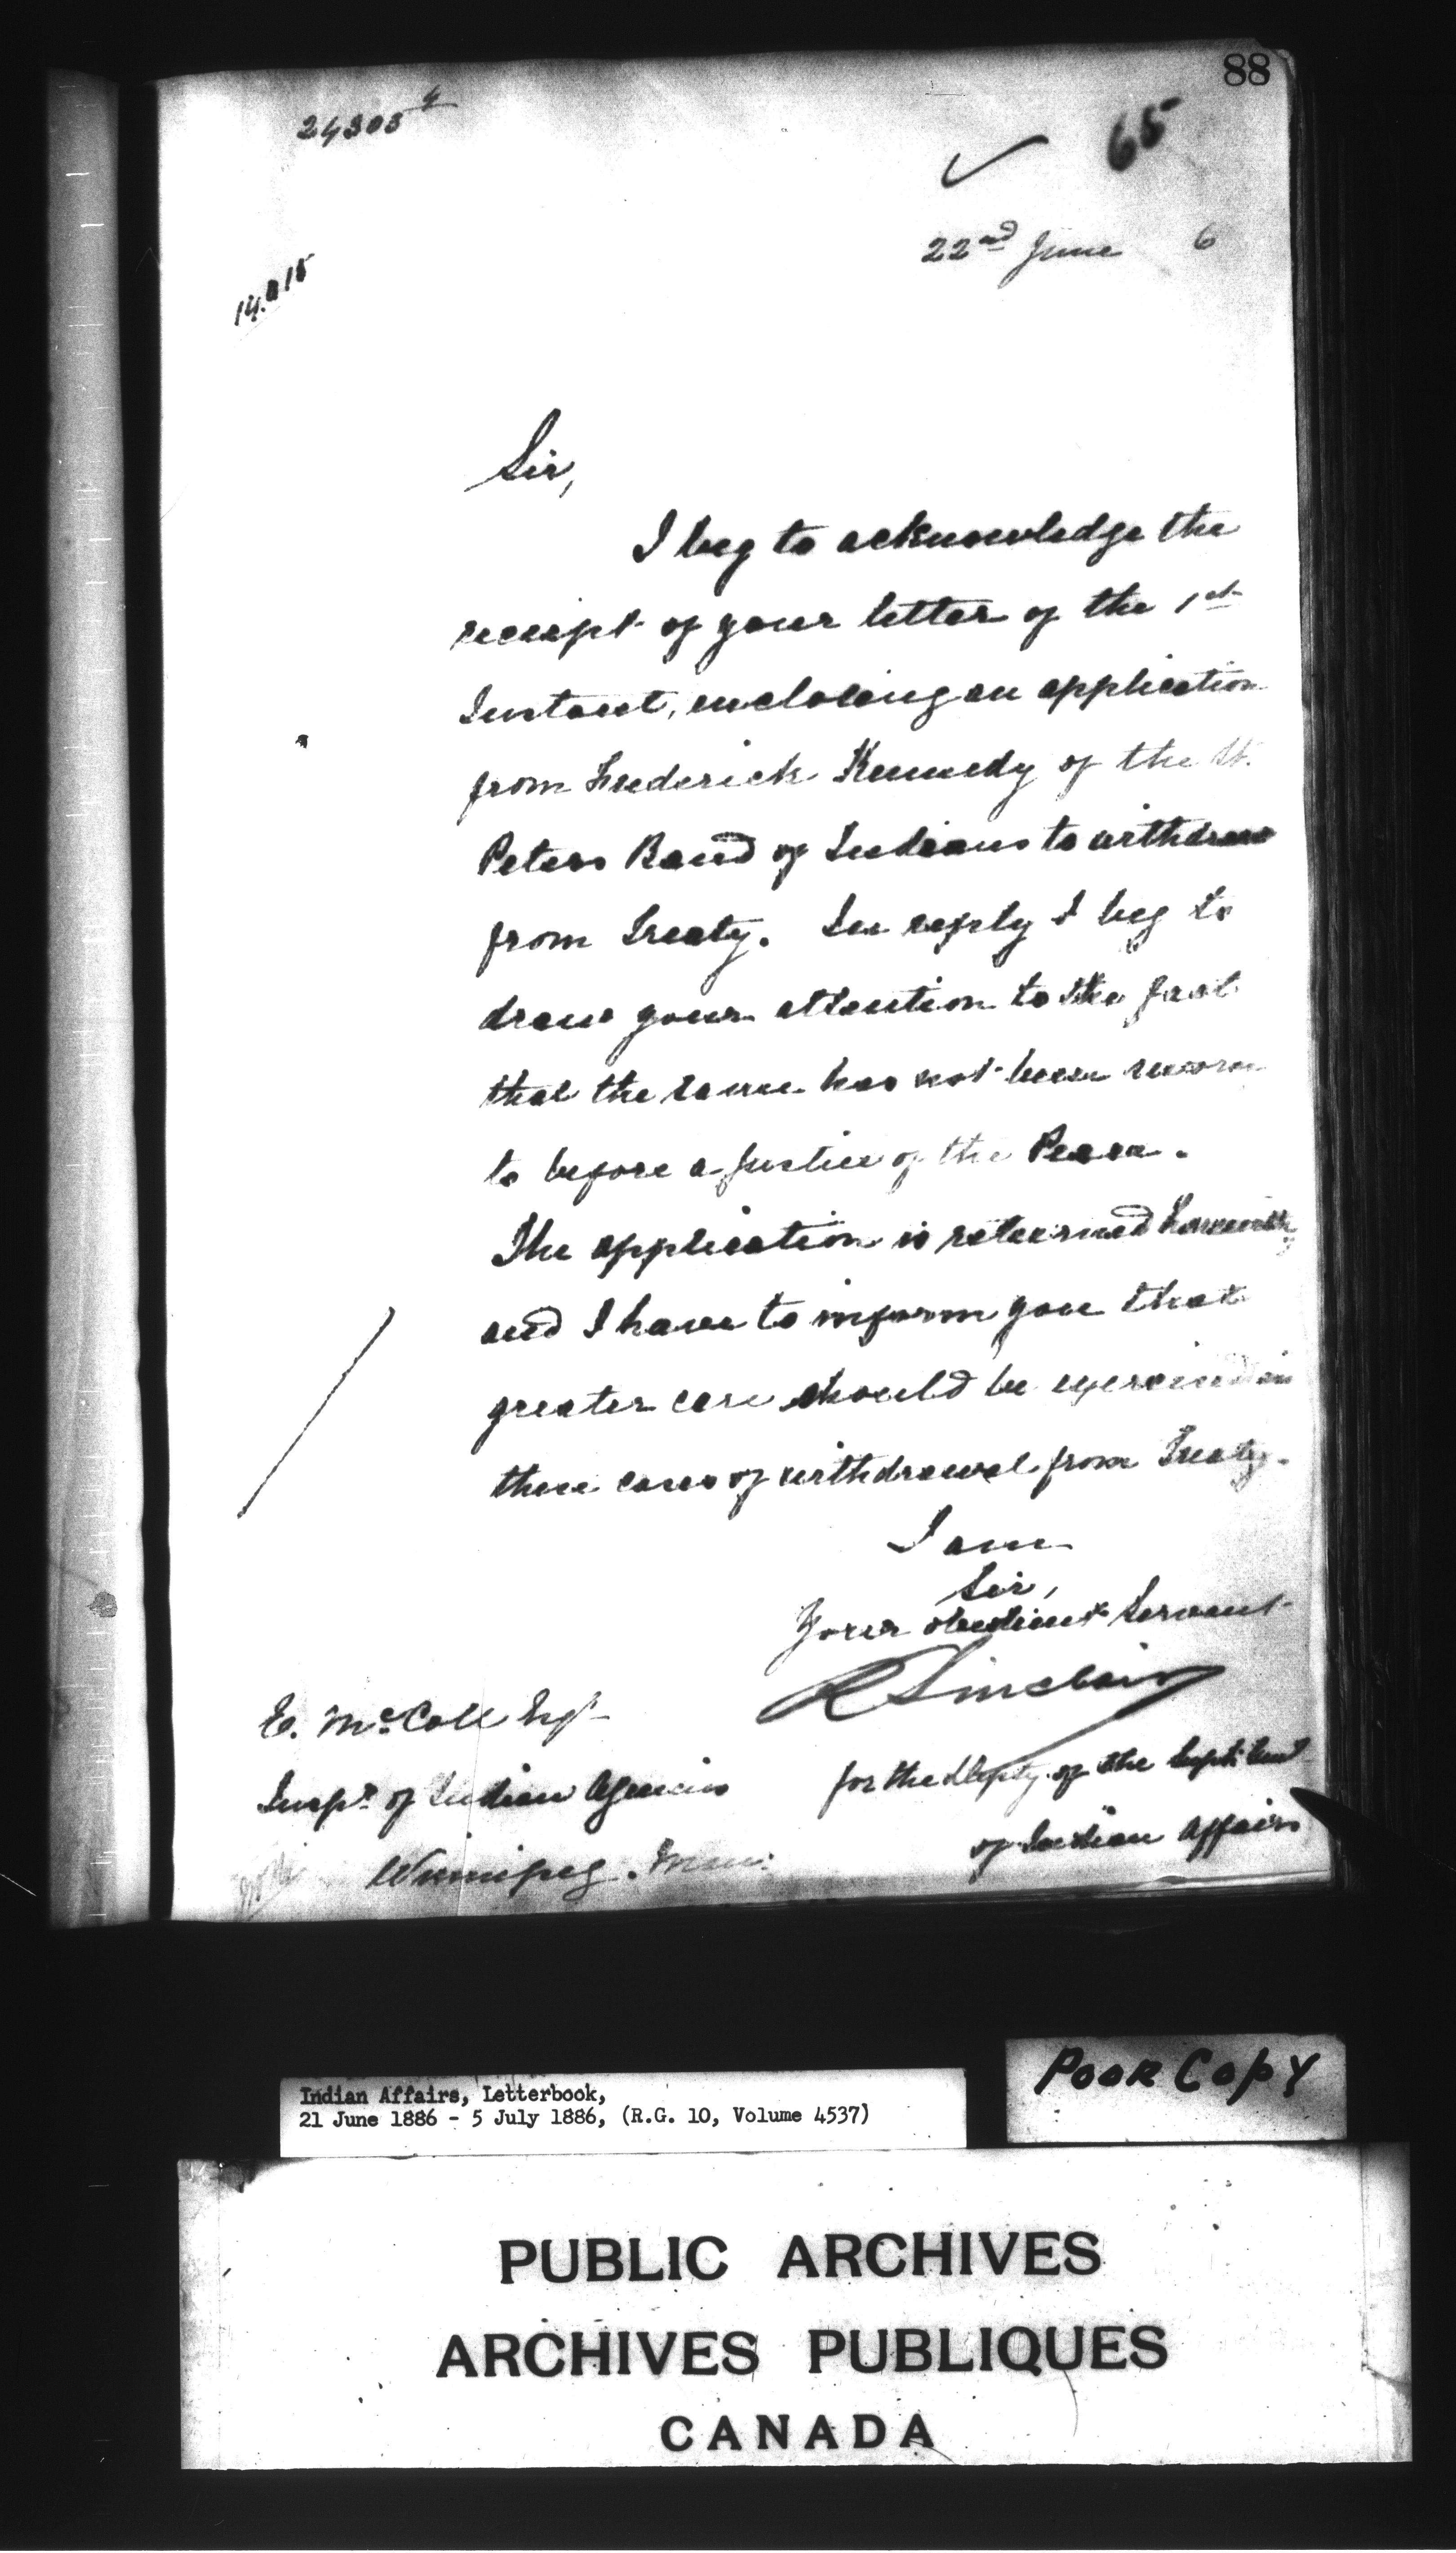 88
24303 4
65
22nd June 6
14.815
Sir,
I beg to acknowledge the
receipt of your letter of the 1st
Instant, enclosing an application
from Frederick Kennedy of the St.
Peters Band of Indians to withdraw
from Treaty. In reply I beg to
draw your attention to the fact
that the same has not been sworn
to before a Justice of the Peace.
The application is returned herewith,
and I have to inform you that
greater care should be exercised in
these cases of withdrawal from Treaty.
I am
Sir,
Your obedient Servant
R Sinclair
for the Depty. of the Supt. Genl
of Indian Affairs
E. McColl Esqr
Inspr of Indian Agencies
Winnipeg. Man:
Indian Affairs, Letterbook,
21 June 1886 - 5 July 1886, (R.G. 10, Volume 4537)
POOR COPY
PUBLIC ARCHIVES
ARCHIVES PUBLIQUES
CANADA